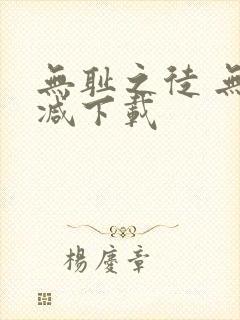 無耻之徒 無
減下載
楊慶章